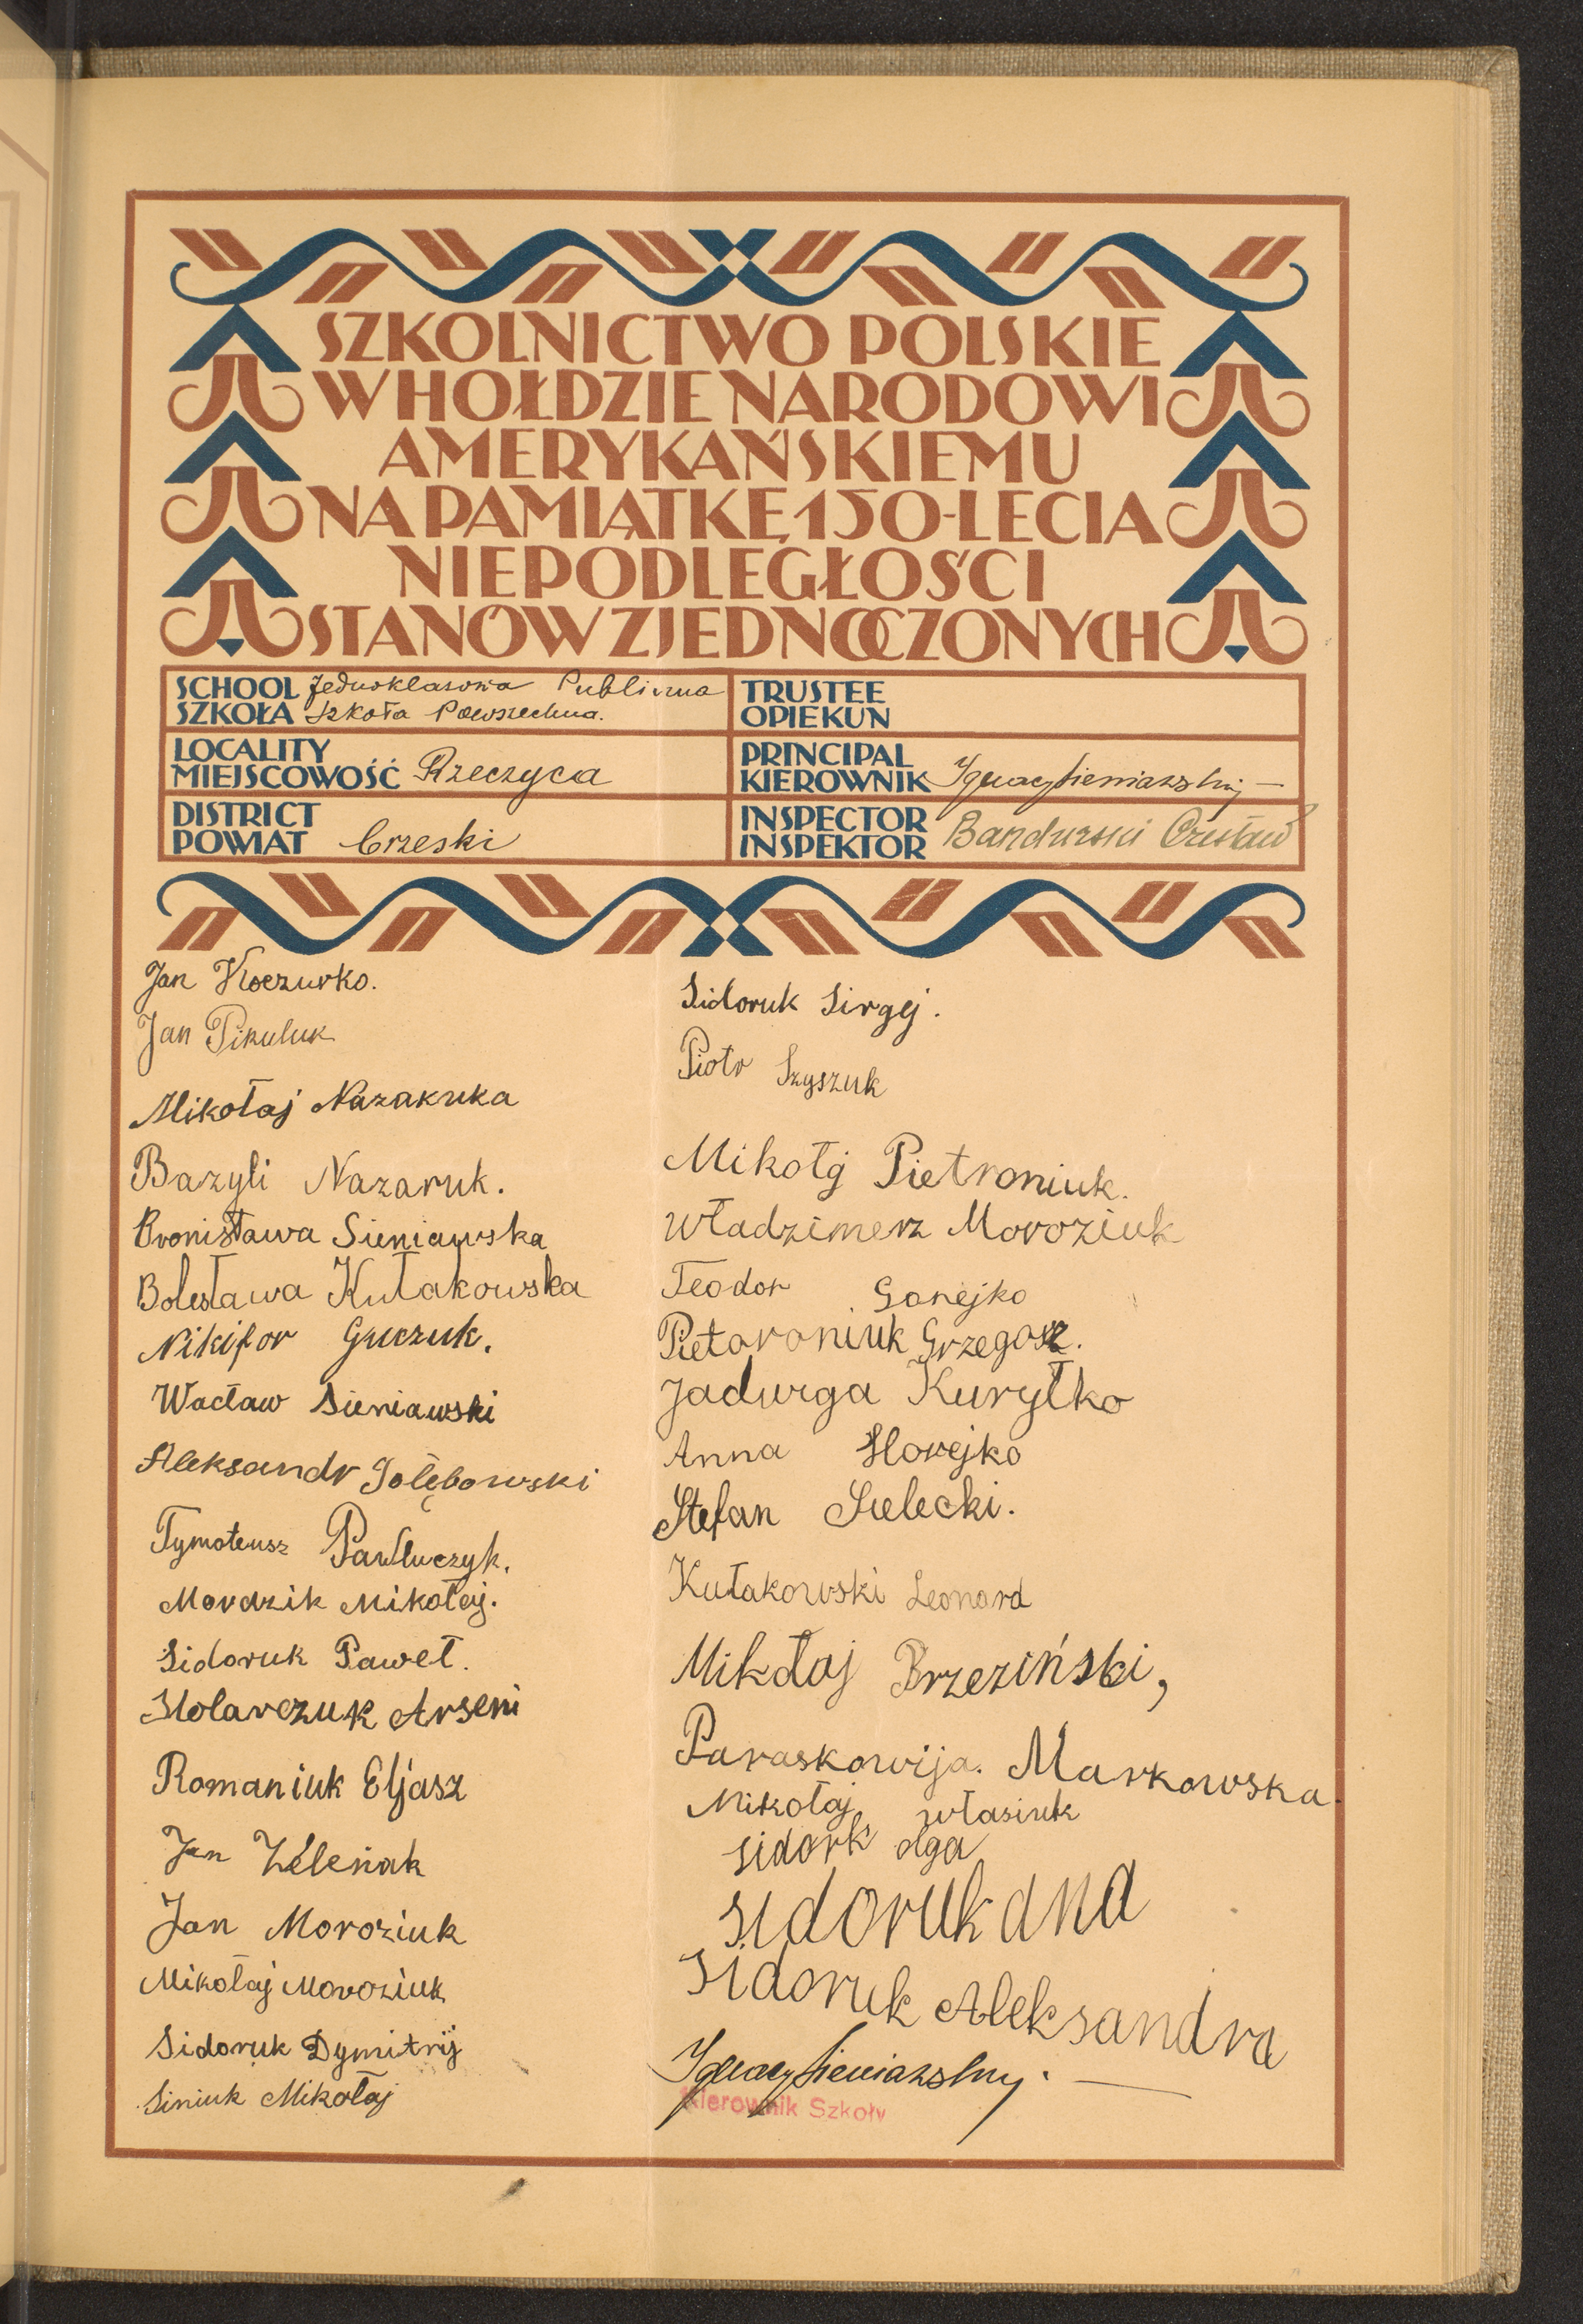 SZKOLNICTWO POLSKIE
W HOŁDZIE NARODOWI
AMERYKAŃSKIEMU
NA PAMIĄTKĘ 150-LECIA
NIEPODLEGŁOŚCI
STANÓW ZJEDNOCZONYCH
SCHOOL
SZKOŁA
Jednoklasowa Publiczna
Szkoła Powszechna.
TRUSTEE
OPIEKUN
LOCALITY
MIEJSCOWOŚĆ
Rzeczyca
PRINCIPAL
KIEROWNIK
Ignacy Sieniawski
DISTRICT
POWIAT
brzeski
INSPECTOR
INSPEKTOR
Bandurski Czesław
Jan Koczurko.
Jan Pikuluk
Mikołaj Nazakuka
Bazyli Nazaruk.
Bronisława Sieniawska
Bolesława Kułakowska
Nikifor Gruczuk.
Wacław Sieniawski
Aleksandr Golębowski
Tymoteusz Pawluczyk.
Mordzik Mikołaj.
Sidoruk Paweł.
Stolarczuk Arseni
Romaniuk Eljasz
Jan Zeleńak
Jan Moroziuk
Mikołaj Moroziuk
Sidoruk Dymitrij
Siniuk Mikołaj
Sidoruk Sirgej.
Piotr Szyszuk
Mikołj Pietroniuk.
Władzimerz Moroziuk
Teodor Gonejko
Pietaroniuk Grzegorz.
Jadwiga Kuryłko
Anna Horejko
Stefan Sielecki.
Kułakowski Leonard
Mikołaj Brzeziński,
Paraskowija. Markowska.
Mikołaj własiuk
sidork olga
sidoruk ana
Sidoruk Aleksandra
Ignacy Sieniawski.
Kierownik Szkoły